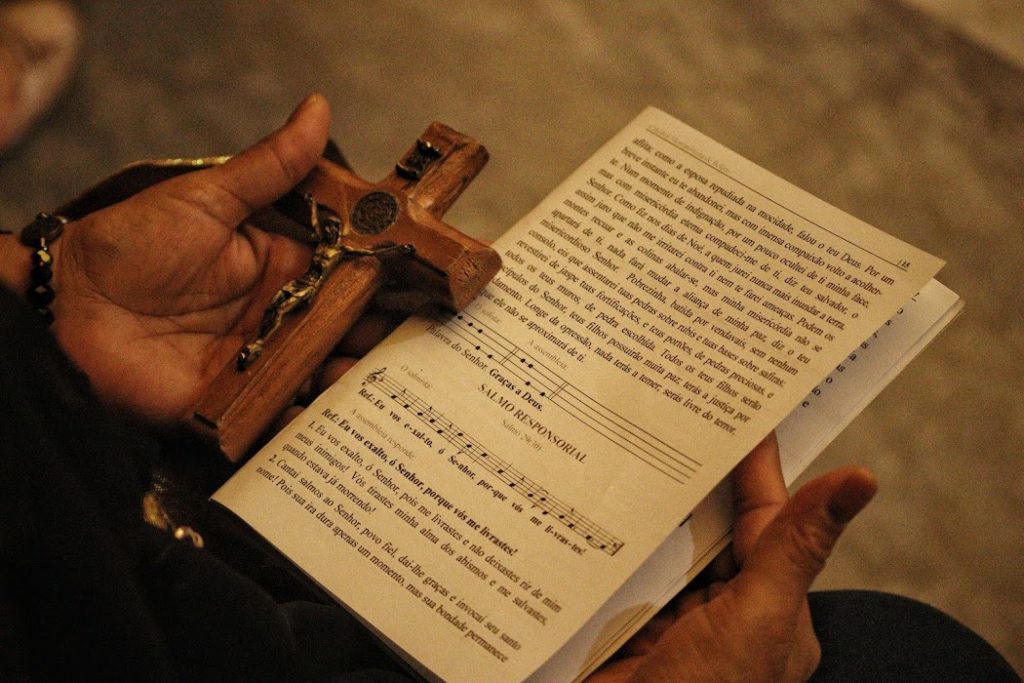 18
aflita; como a esposa repudiada na mocidade, falou o teu Deus. Por um
breve instante eu te abandonei, mas com imensa compaixão volto a acolher-
te. Num momento de indignação, por um pouco ocultei de ti minha face,
mas com misericórdia eterna compadeci-me de ti, diz teu salvador, o
Senhor. Como fiz nos dias de Noé, a quem jurei nunca mais inundar a terra,
assim juro que não me irritarei contra ti nem te farei ameaças. Podem os
montes recuar e as colinas abalar-se, mas minha misericórdia não se
apartará de ti, nada fará mudar a aliança de minha paz, diz o teu
misericordioso Senhor. Pobrezinha, batida por vendavais, sem nenhum
consolo, eis que assentarei tuas pedras sobre rubis e tuas bases sobre safiras;
revestirei de jaspe tuas fortificações, e teus portões, de pedras preciosas, e
todos os teus muros, de pedra escolhida. Todos os teus filhos serão
discípulos do Senhor, teus filhos possuirão muita paz; terás a justiça por
fundamento. Longe da opressão, nada terás a temer; serás livre do terror,
que ele não se aproximará de ti.
O salmista. A assembleia.
Palavra do Senhor. Graças a Deus.
SALMO RESPONSORIAL
Salmo 29(30)
O salmista.
Ref.: Eu vos e-xal-to, ó Se-nhor, por-que vós me li-vras-tes!
A assembleia responde:
Ref.: Eu vos exalto, ó Senhor, porque vós me livrastes!
1. Eu vos exalto, ó Senhor, pois me livrastes e não deixastes rir de mim
meus inimigos! Vós tirastes minha alma dos abismos e me salvastes,
quando estava já morrendo!
2. Cantai salmos ao Senhor, povo fiel, dai-lhe graças e invocai seu santo
nome! Pois sua ira dura apenas um momento, mas sua bondade permanece